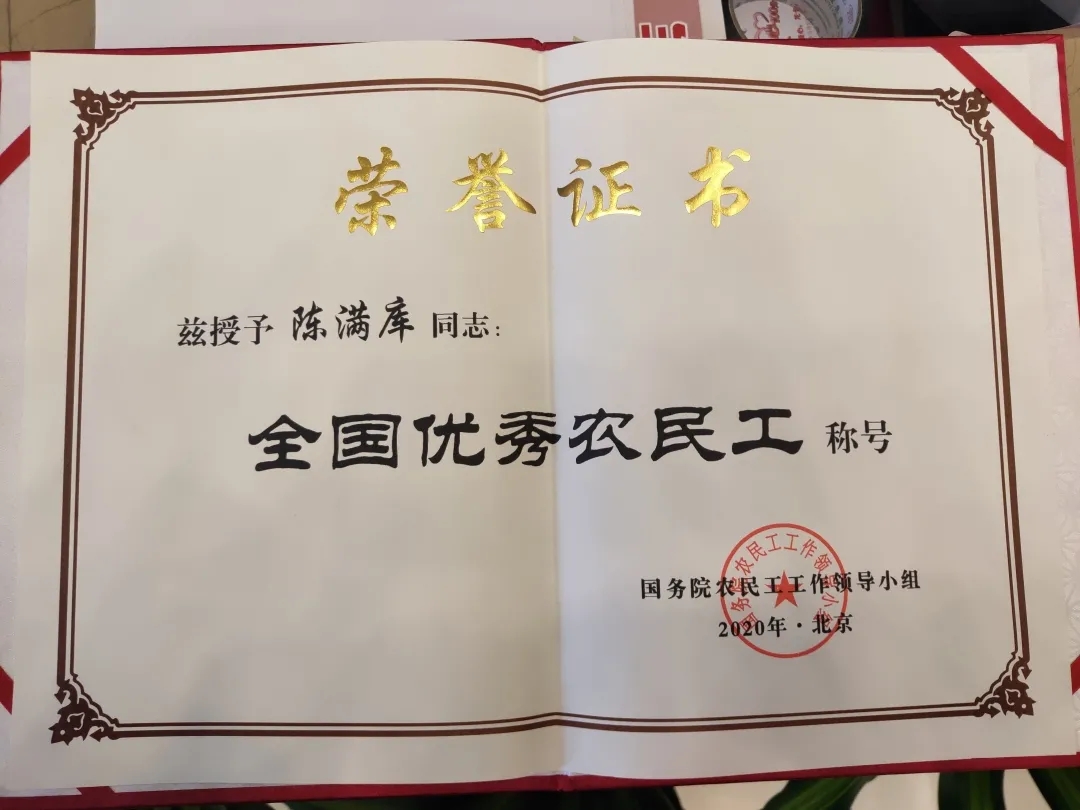 荣誉证书
兹授予 陈满库 同志：
全国优秀农民工 称号
国务院农民工工作领导小组
2020年·北京
国务院农民工工作领导小组